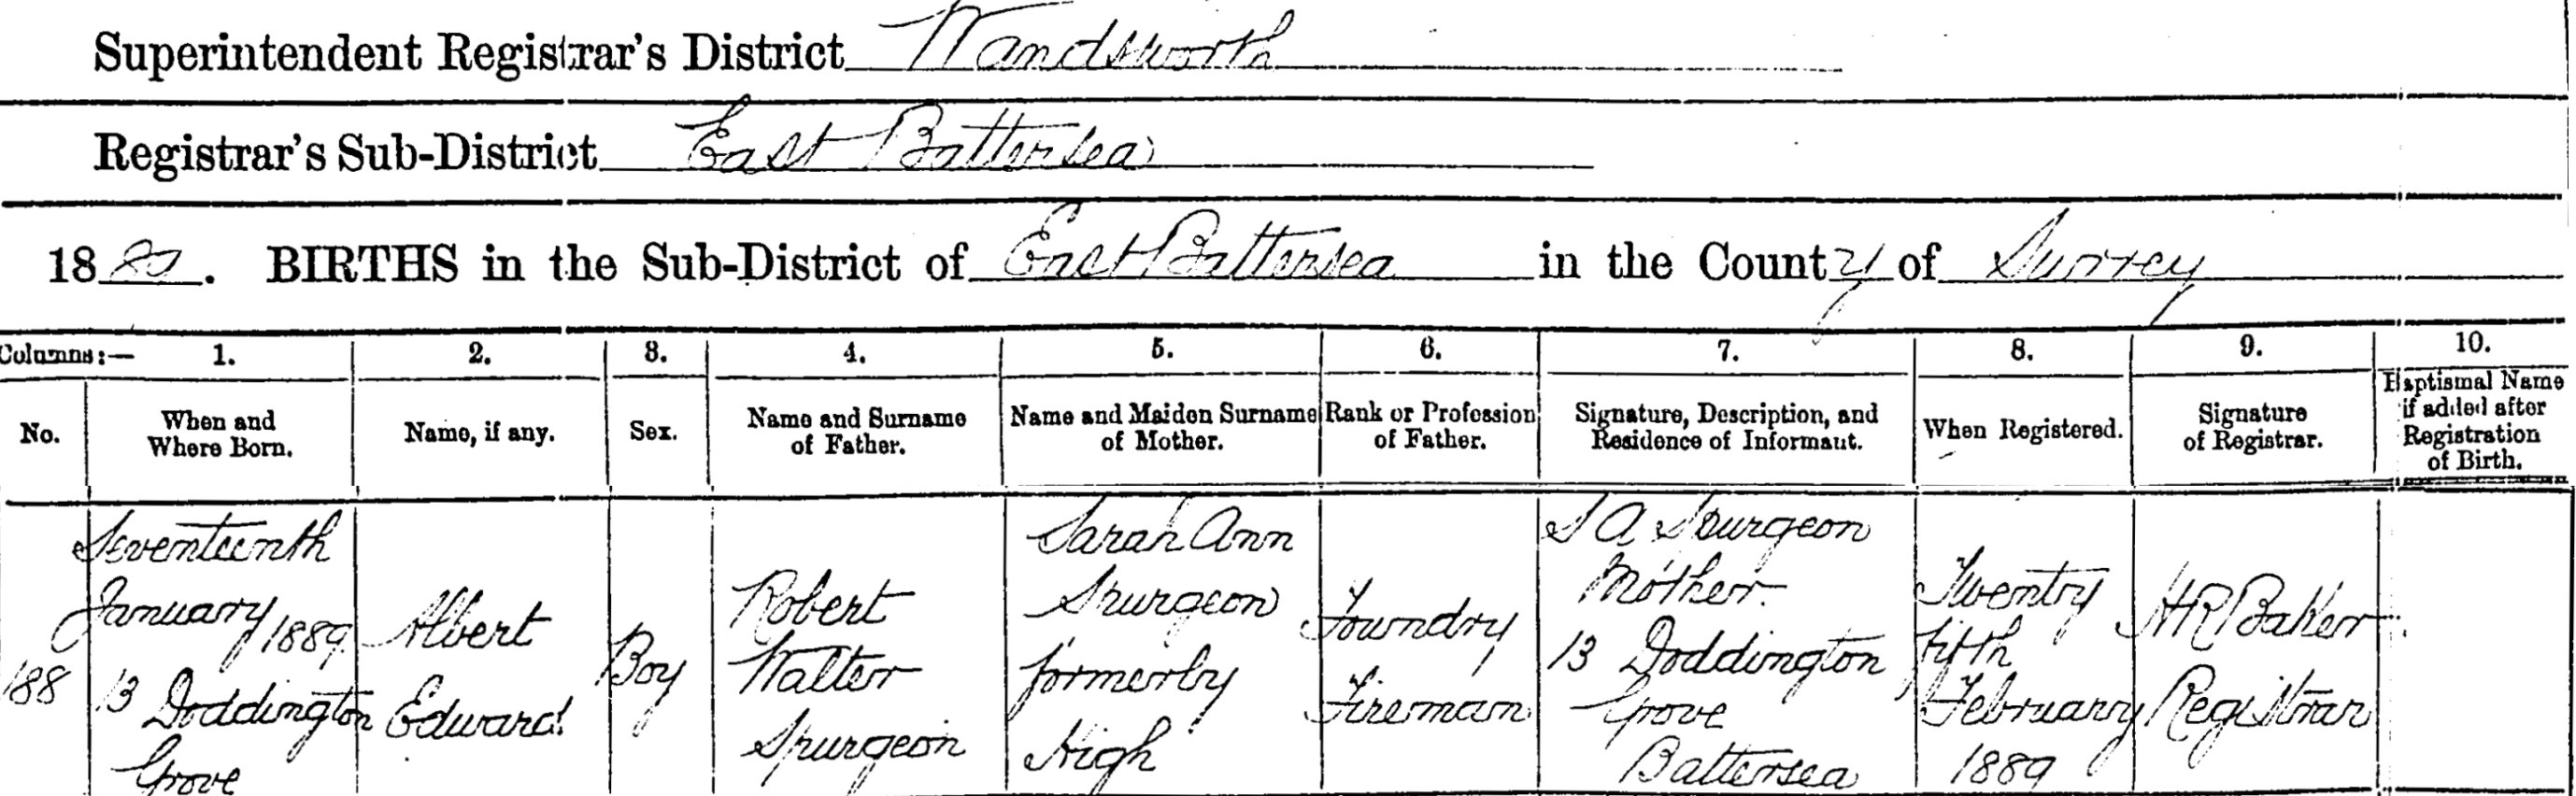 Superintendent Registrar's District Wandsworth
Registrar's Sub-District East Battersea
1889. BIRTHS in the Sub-District of East Battersea in the County of Surrey
Columns:— 1. 2. 3. 4. 5. 6. 7. 8. 9. 10.
No.
When and
Where Born.
Name, if any.
Sex.
Name and Surname
of Father.
Name and Maiden Surname
of Mother.
Rank or Profession
of Father.
Signature, Description, and
Residence of Informant.
When Registered.
Signature
of Registrar.
Baptismal Name
if added after
Registration
of Birth.
188
Seventeenth
January 1889
13 Doddington
Grove
Albert
Edward
Boy
Robert
Walter
Spurgeon
Sarah Ann
Spurgeon
formerly
High
Foundry
Fireman
S A Spurgeon
Mother
13 Doddington
Grove
Battersea
Twenty
fifth
February
1889
HR Baker
Registrar